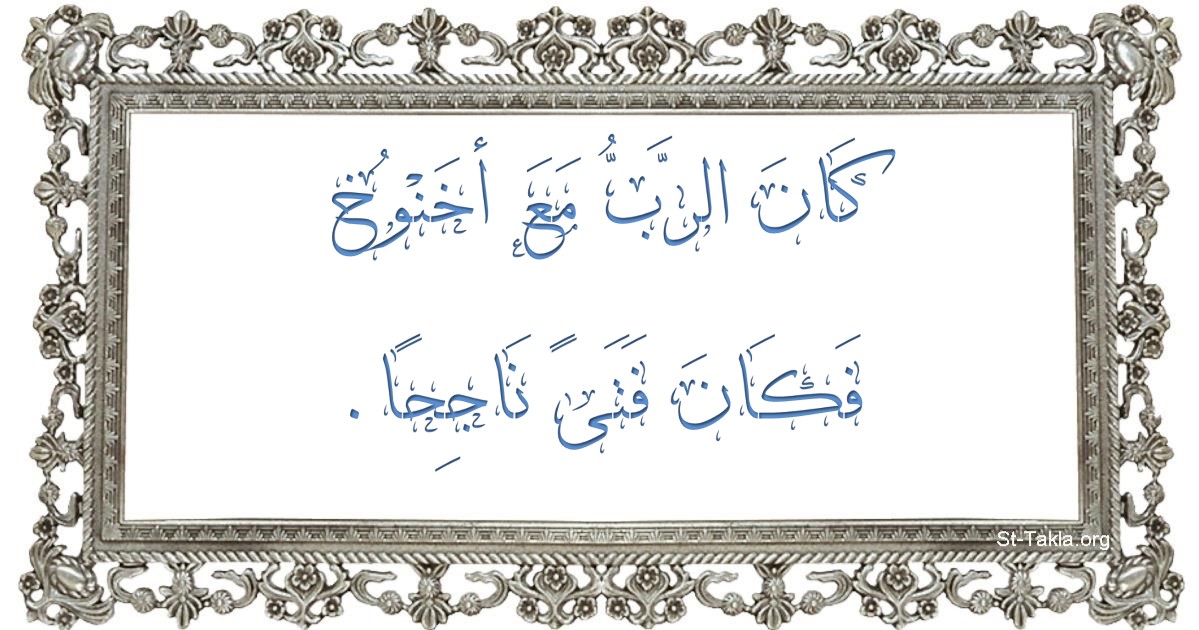 كَانَ الرَّبُّ مَعَ أَخَنْوُخ
فَكَانَ فَتَىً نَاجِحًا .
St-Takla.org